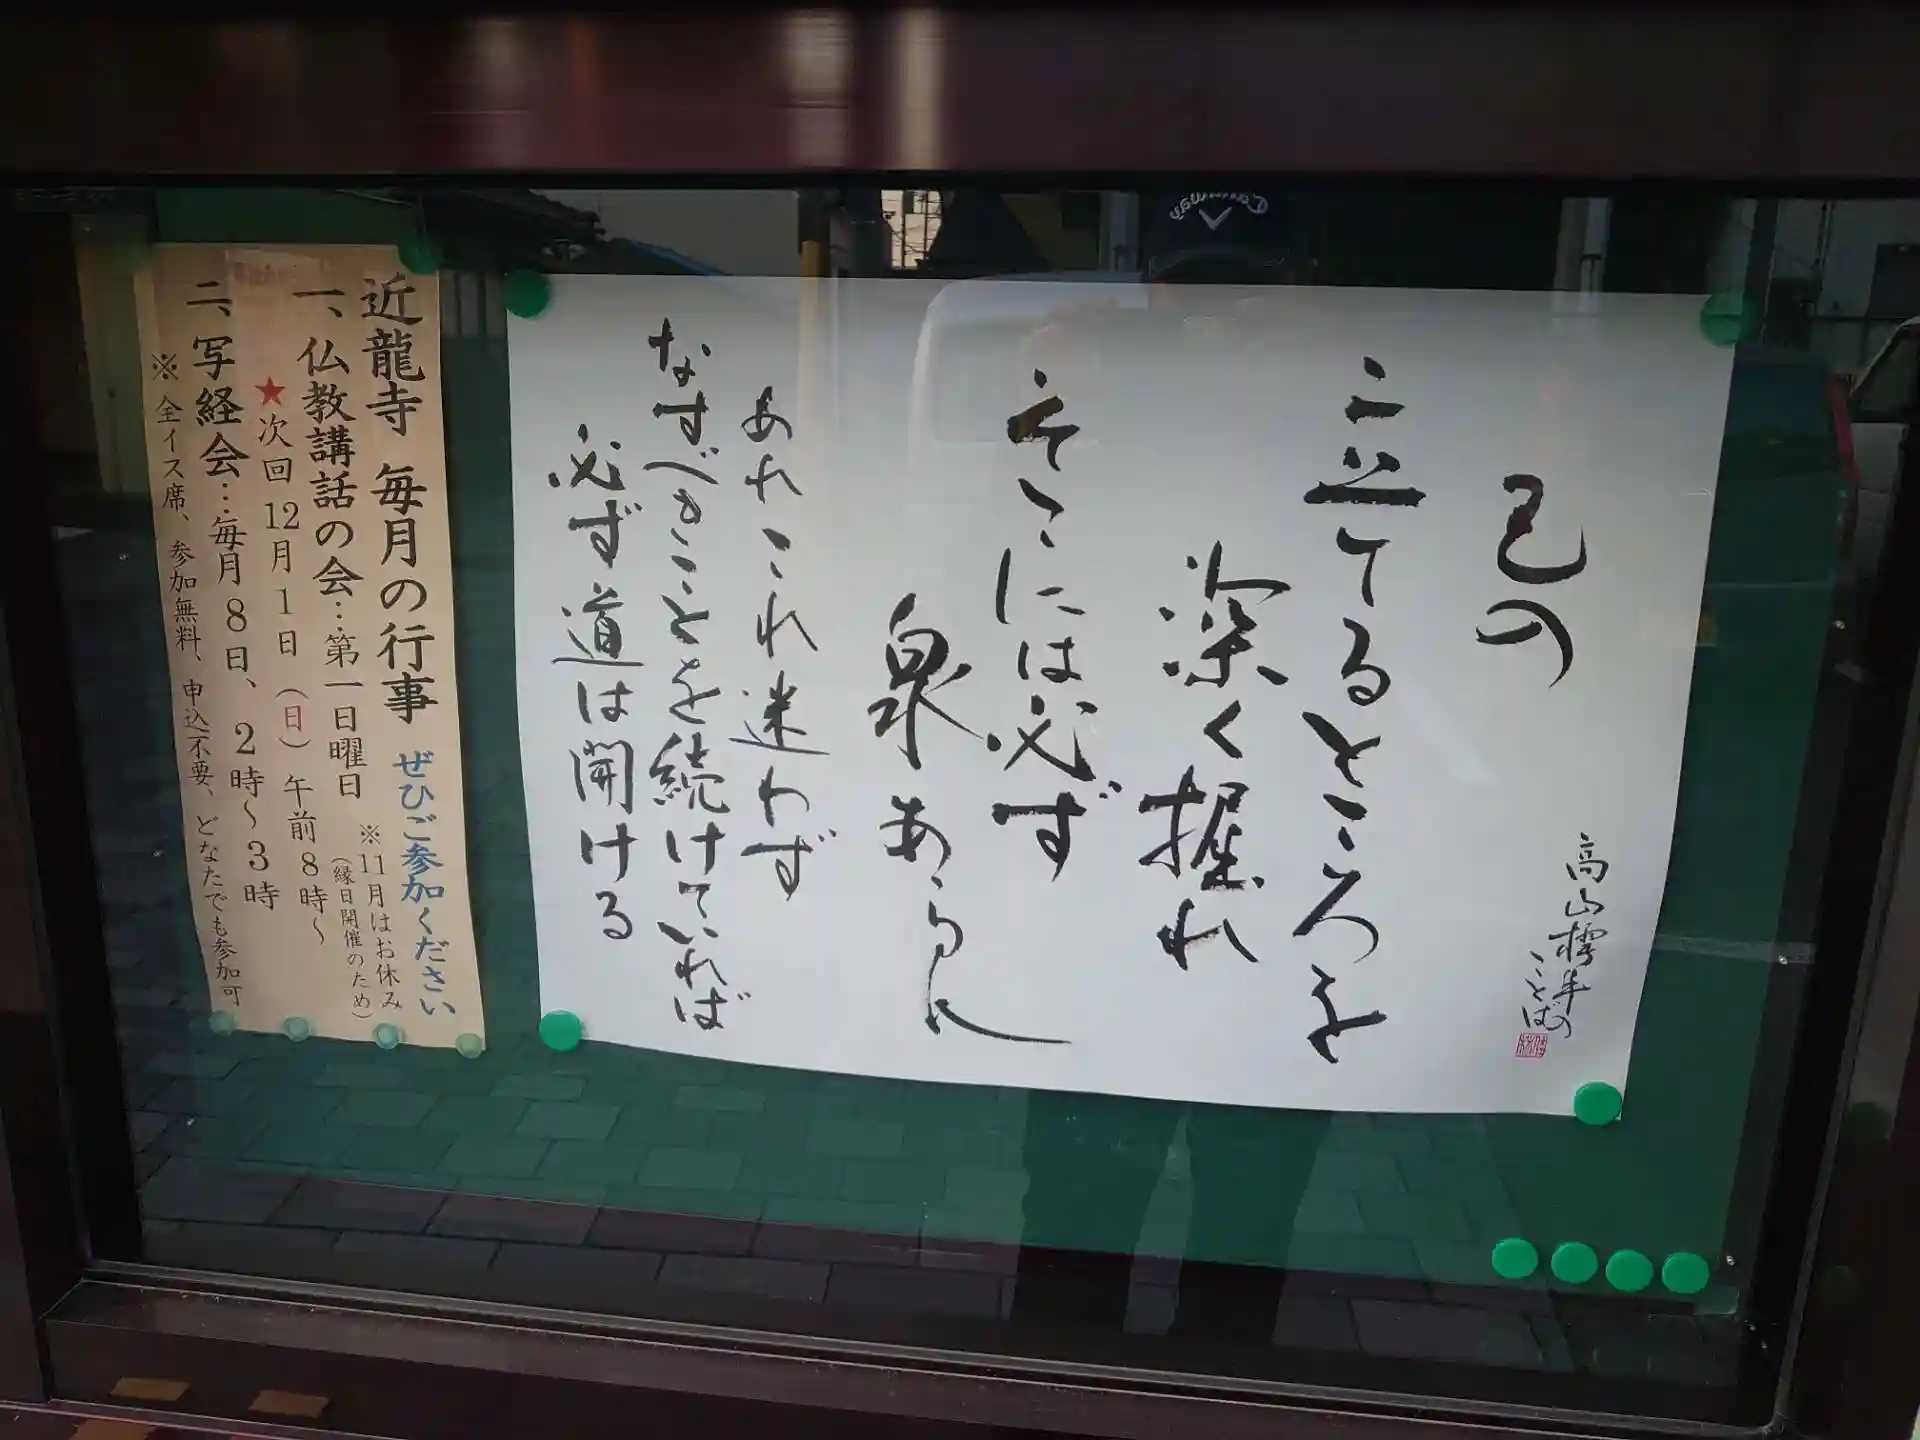 高山樗牛の
ことば
己の
立てるところを
深く掘れ
そこには必ず
泉あらん
あれこれ迷わず
なすべきことを続けていれば
必ず道は開ける
近龍寺 毎月の行事 ぜひご参加ください
一、仏教講話の会…第一日曜日 ※11月はお休み
(縁日開催のため)
★次回12月1日(日)午前8時~
二、写経会…毎月8日、2時~3時
※全イス席、参加無料、申込不要、どなたでも参加可
Callaway